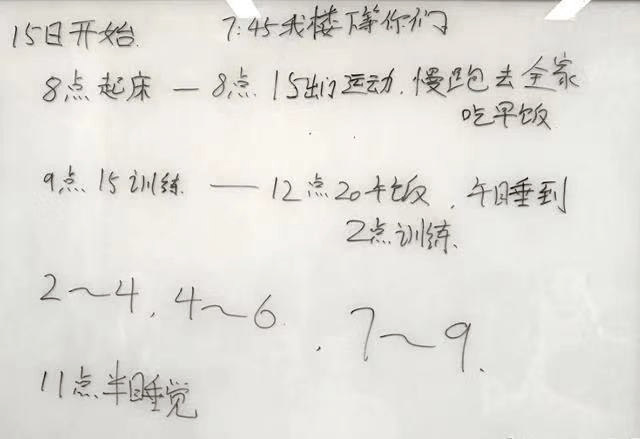 15日开始. 7:45我楼下等你们
8点起床 — 8点15出门运动.慢跑去全家
吃早饭
9点15训练 —— 12点20午饭,午睡到
2点训练.
2~4, 4~6. , 7~9.
11点半睡觉